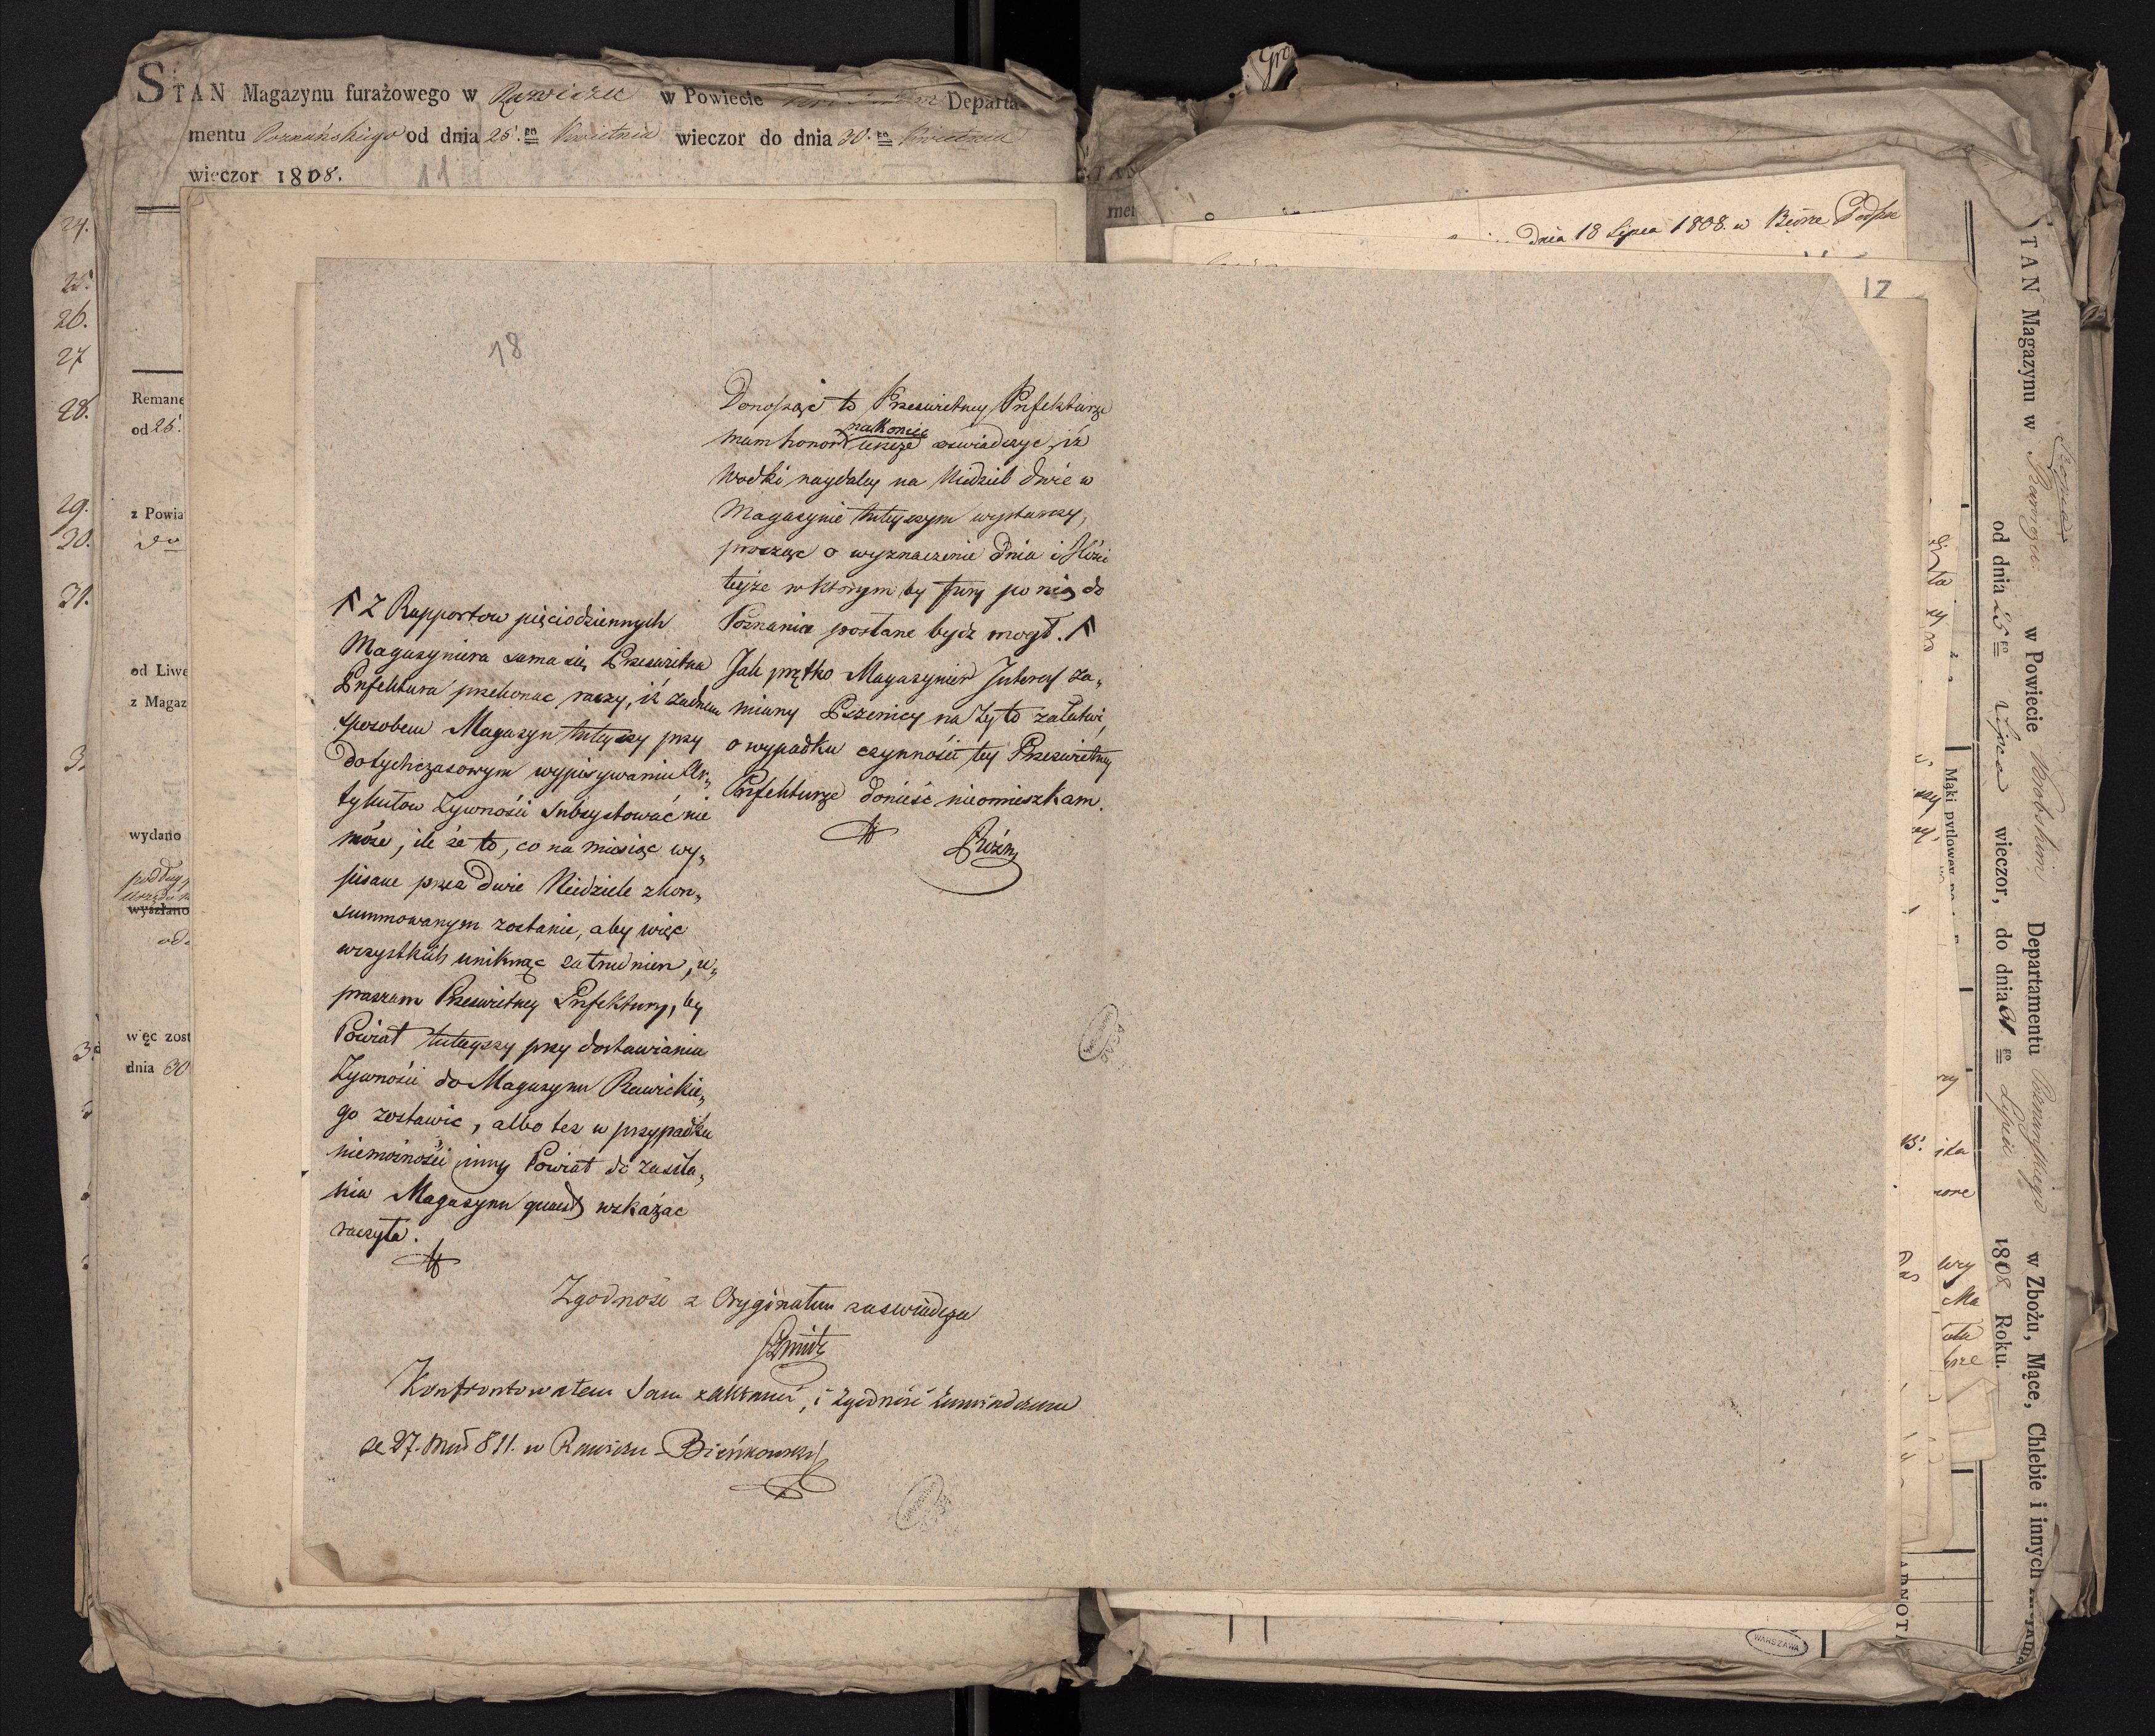 STAN Magazynu furażowego w Rawiczu w Powiecie Departa-
mentu Poznańskiego od dnia 25. go Kwietnia wieczor do dnia 30. go Kwietnia
wieczor 1808.
11
24.
25.
26.
27
28.
29.
30.
31.
Remane
od 25.
z Powia
od Liwe
z Magaz
wydano
podług
wyszłano
więc zost
dnia 30
18
Donosząc to Prześwietney Prefekturze
mam honor nakoniec oswiadczyć, iż
Wodki naydaley na Niedziel dwie w
Magazynie tuteyszym wystarczy,
prosząc o wyznaczenie dnia i Ilości
teyże w którym by fury po nią do
Poznania posłane bydź mogł.
Jak prętko Magazynier Interes za„
miany Pszenicy na Żyto załatwi,
o wypadku czynności tey Prześwietney
Prefekturze donieść nieomieszkam.
Z Rapportow pięciodziennych
Magazyniera sama się Prześwietna
Prefektura przekonac raczy, iż żadnem
sposobem Magazyn tuteyszy przy
dotychczasowym wypisywaniu Ar„
tykułow Żywności Subsystować nie
może, ile że to, co na miesiąc wy„
pisane przez dwie Niedziele zkon„
summowanym zostanie, aby więc
wszystkich uniknąć zatrudnien, u„
praszam Prześwietney Prefektury, by
Powiat tuteyszy przy dostawianiu
Żywności do Magazynu Rawickie„
go zostawic, albo tez w przypadku
niemożności inny Powiat do zasila„
nia Magazynu quaest wskazac
raczyła.
Zgodność z Oryginałem zaswiadcza
Konfrontowałem Sam z aktami, i zgodność zaswiadczam
de 27. 811. w Rawiczu Bieńkowski
dnia 18 Lipca 1808. w Biórze Podpre
17
STAN Magazynu w Rawiczu w Powiecie Krobskim Departamentu Poznańskiego w Zbożu, Mące, Chlebie i innych
od dnia 25 go Lipca wieczor, do dnia 31 go Lipca 1808 Roku.
Mąki pytlowey
WARSZAWA